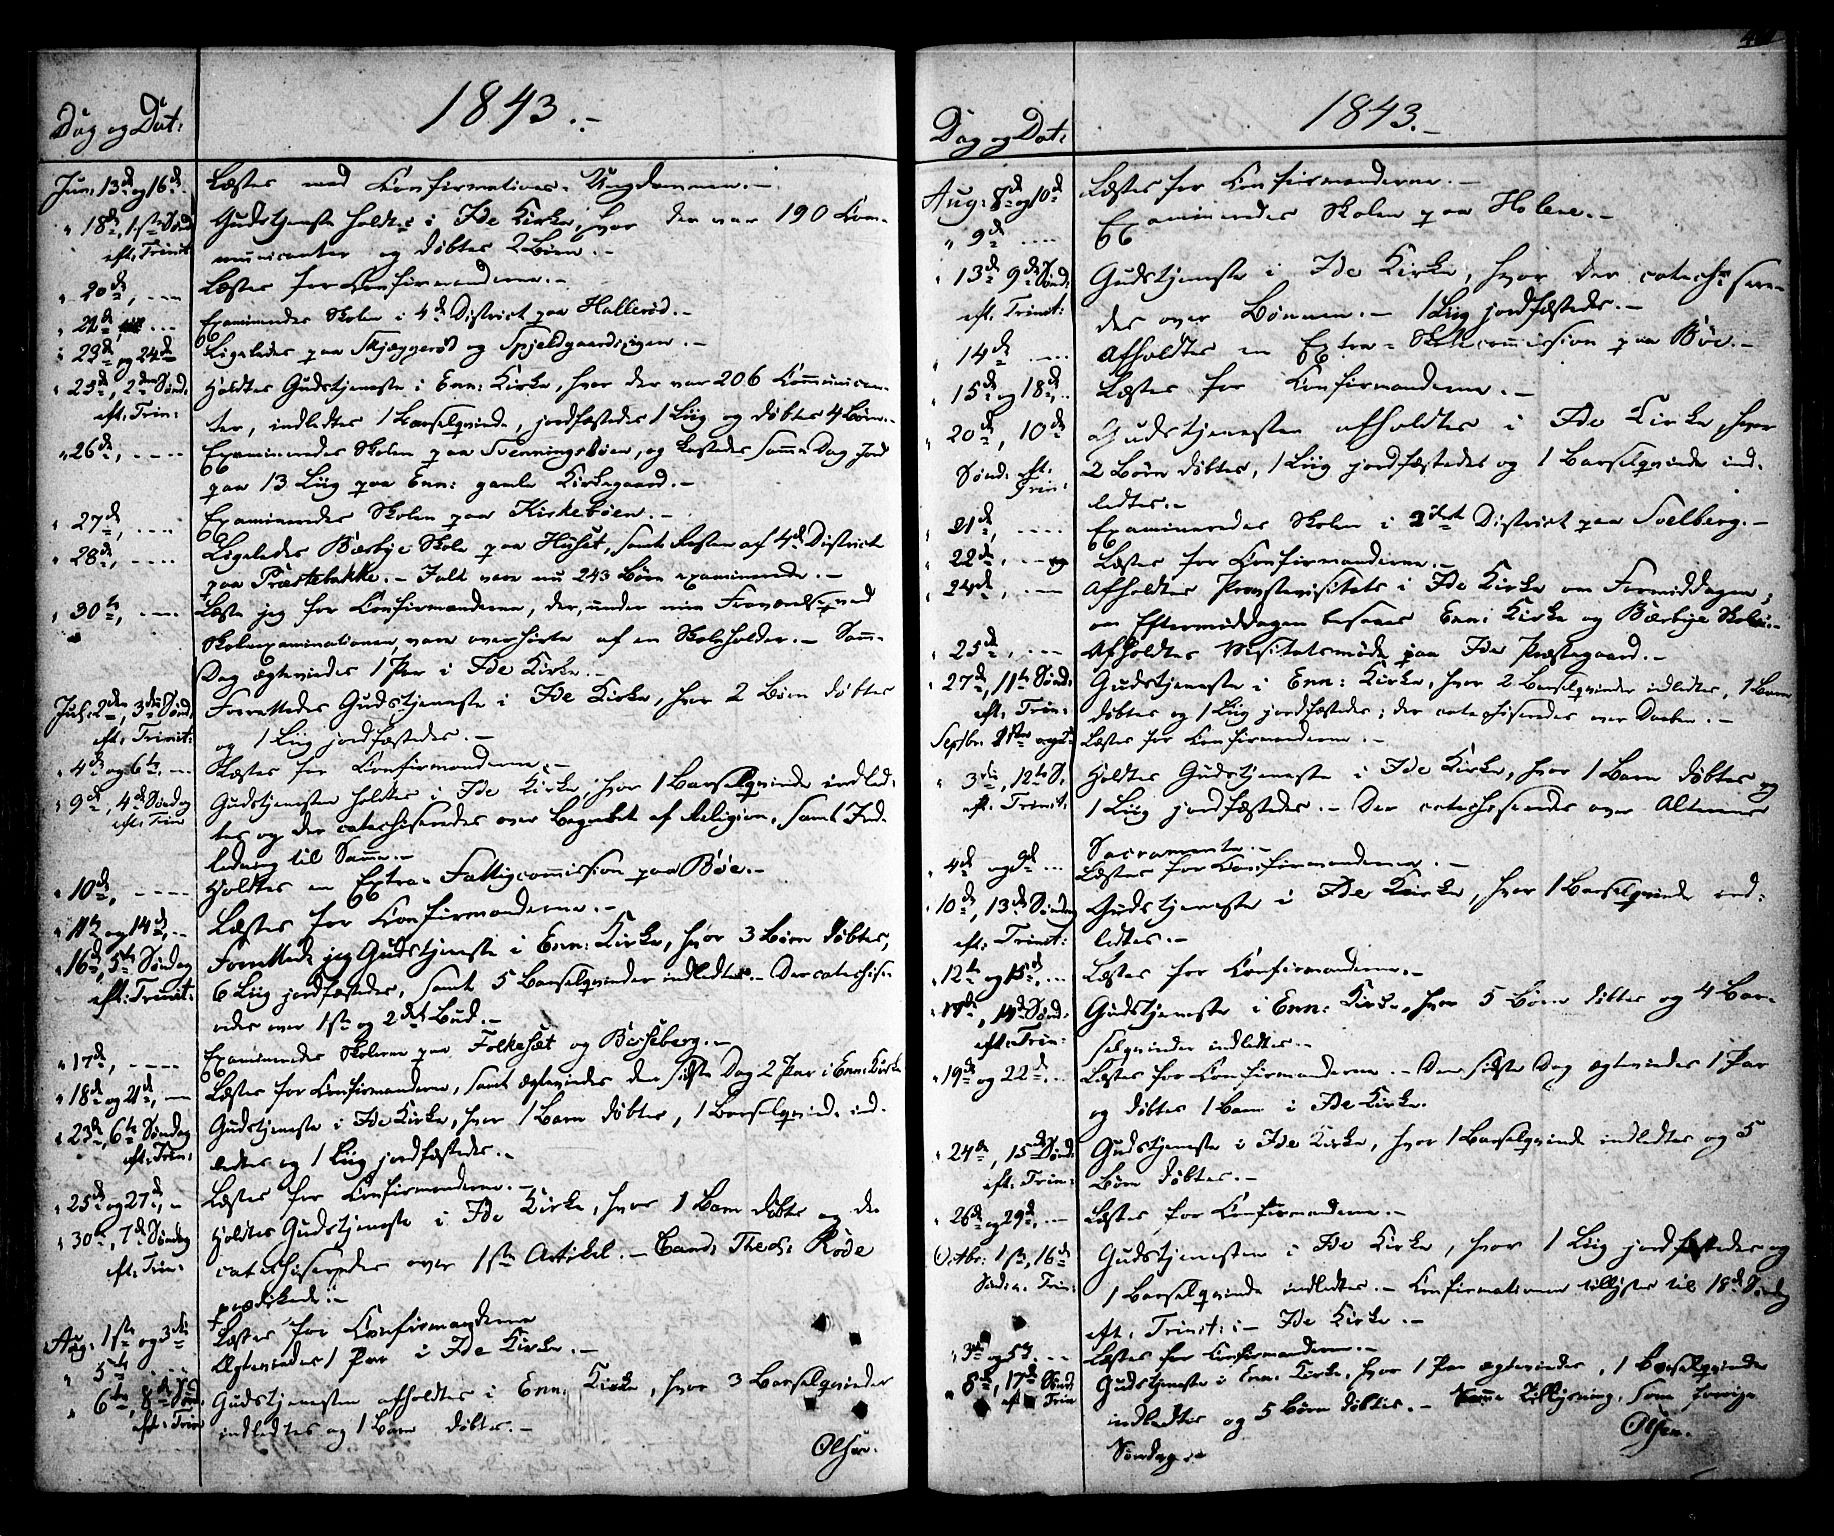 Dag og Dat:
1843.-
Jun: 13d og 16d. Læstes med Confirmations-Ungdommen.-
" 18d, 1ste Sønd. Gudstjeneste holdtes i Ide Kirke, hvor der var 190 Com-
eft: Trinit municanter og døbtes 2 Børn.-
" 20d, --- Læstes for Confirmanderne.-
" 22d --- Examineredes Skolen i 4d District paa Hallerød.-
" 23d og 24d Ligeledes paa Skjæggerød og Spjeldgaardseien.-
" 25d, 2den Sønd: Holdtes Gudstjeneste i Enn: Kirke, hvor der var 206 Communican-
eft: Trin: ter, indledtes 1 Barselqvinde, jordfæstedes 1 Liig og døbtes 4 Børn.-
" 26d, ---- Examineredes Skolen paa Svenningsbøen, og kastedes samme Dag Jord
paa 13 Liig paa Enn: gamle Kirkegaard.-
" 27d, ---- Examineredes Skolen paa Kirkebøen.-
" 28d, ---- Ligeledes Bærbye Skole paa Huset, samt Resten af 4d District
paa Præstebakke.- I alt vare nu 243 Børn examinerede.-
" 30te, --- Læste jeg for Confirmanderne, der, under min Fraværelse ved
Skoleexaminationen, vare overhørte af en Skoleholder.- Samme
Dag ægteviedes 1 Par i Ide Kirke.-
Jul: 2den, 3die Sønd: Forrettedes Gudstjeneste i Ide Kirke, hvor 2 Børn døbtes
eft: Trinit: og 1 Liig jordfæstedes.-
" 4de og 6te, -- Læstes for Confirmanderne.-
" 9d, 4de Søndag Gudstjenesten holdtes i Ide Kirke, hvor 1 Barselqvinde indled-
eft: Trin tes og der catechiseredes over Begrebet af Religion, samt Ind-
ledning til Samme.-
" 10d, ---- Holdtes en Extra-Fattigcommission paa Bøe.-
" 11te og 14d, -- Læstes for Confirmanderne.-
" 16d, 5te Søndag Forrettede jeg Gudstjeneste i Enn: Kirke, hvor 3 Børn døbtes,
eft: Trinit: 6 Liig jordfæstedes, samt 5 Barselqvinder indledtes.- Der catechise-
redes over 1ste og 2det Bud.-
" 17d, ---- Examineredes Skolerne paa Folkesæt og Berseberg.-
" 18d og 21d, --- Læstes for Confirmanderne, samt ægteviedes den sidste Dag 2 Par i Enn: Kirke
" 23d, 6te Søndag Gudstjeneste i Ide Kirke, hvor 1 Barn døbtes, 1 Barselqvinde ind-
eft: Trin: ledtes og 1 Liig jordfæstedes.-
" 25d og 27d, - Læstes for Confirmanderne.-
" 30te, 7d Søndag Holdtes Gudstjeneste i Ide Kirke, hvor 1 Barn døbtes og der
eft: Trin: catechiseredes over 1ste Artikel.- Cand: Theol: Rode
prædikede.-
Aug: 1ste og 3die Læstes for Confirmanderne
" 5te Ægteviedes 1 Par i Ide Kirke.-
" 6te, 8de Sønd. Gudstjenesten afholdtes i Enn: Kirke, hvor 3 Barselqvinder
eft: Trin indledtes og 1 Barn døbtes.-
Olsen.
Dag og Dat:
1843.-
Aug: 8d og 10d Læstes for Confirmanderne.-
" 9d ---- Examineredes Skolen paa Holene.-
" 13d 9d Sønd: Gudstjeneste i Ide Kirke, hvor der catechisere-
eft: Trinit: des over Bønnen.- 1 Liig jordfæstedes.-
" 14d ---- Afholdtes en Extra-Skolecommission paa Bøe.-
" 15d og 18d, -- Læstes for Confirmanderne.-
" 20d, 10d Gudstjenesten afholdtes i Ide Kirke, hvor
Sønd: eft: Trin: 2 Børn døbtes, 1 Liig jordfæstedes og 1 Barselqvinde ind-
ledtes.-
" 21d, ---- Examineredes Skolen i 2det District paa Svelberg.-
" 22d, --- Læstes for Confirmanderne.-
" 24d, --- Afholdtes Provstevisitats i Ide Kirke om Formiddagen;
om Eftermiddagen besaaes Enn: Kirke og Bærbye Skole.-
" 25d, --- Afholdtes Visitatsmøde paa Ide Præstegaard.-
" 27d, 11te Sønd: Gudstjeneste i Enn: Kirke, hvor 2 Barselqvinder indledtes, 1 Barn
eft: Trin: døbtes og 1 Liig jordfæstedes; der catechiseredes over Daaben.-
Septbr: Læstes for Confirmanderne.-
" 3die, 12te S. Holdtes Gudstjeneste i Ide Kirke, hvor 1 Barn døbtes og
eft: Trinit: 1 Liig jordfæstedes.- Der catechiseredes over Alterens
Sacramente.-
" 4d og 9d --- Læstes for Confirmanderne.-
" 10d, 13d Søndag Gudstjeneste i Ide Kirke, hvor 1 Barselqvinde ind-
eft: Trinit: ledtes.-
" 12te og 15d, --- Læstes for Confirmanderne.-
" 17d, 14d Sønd: Gudstjeneste i Enn: Kirke, hvor 5 Børn døbtes og 4 Bar-
eft: Trin: selqvinder indledtes.-
" 19d og 22d, -- Læstes for Confirmanderne.- Den sidste Dag ægteviedes 1 Par
og døbtes 1 Barn i Ide Kirke.
" 24de, 15d Sønd: Gudstjeneste i Ide Kirke, hvor 1 Barselqvinde indledtes og 5
eft: Trin: Børn døbtes.-
" 26d og 29d, --- Læstes for Confirmanderne.-
Octbr: 1ste, 16d Gudstjenesten i Ide Kirke, hvor 1 Liig jordfæstedes og
Sønd: e. Trin: 1 Barselqvinde indledtes.- Confirmationen tillystes til 18d Søndag
eft: Trinit: i Ide Kirke.-
" 3d og 5t, -- Læstes for Confirmanderne.-
" 8d, 17d Sønd: Gudstjeneste i Enn: Kirke, hvor 1 Par ægteviedes, 1 Barselqvinde
eft Trin indledtes og 5 Børn døbtes.- Samme Tillysning, som forrige
Søndag.-
Olsen.